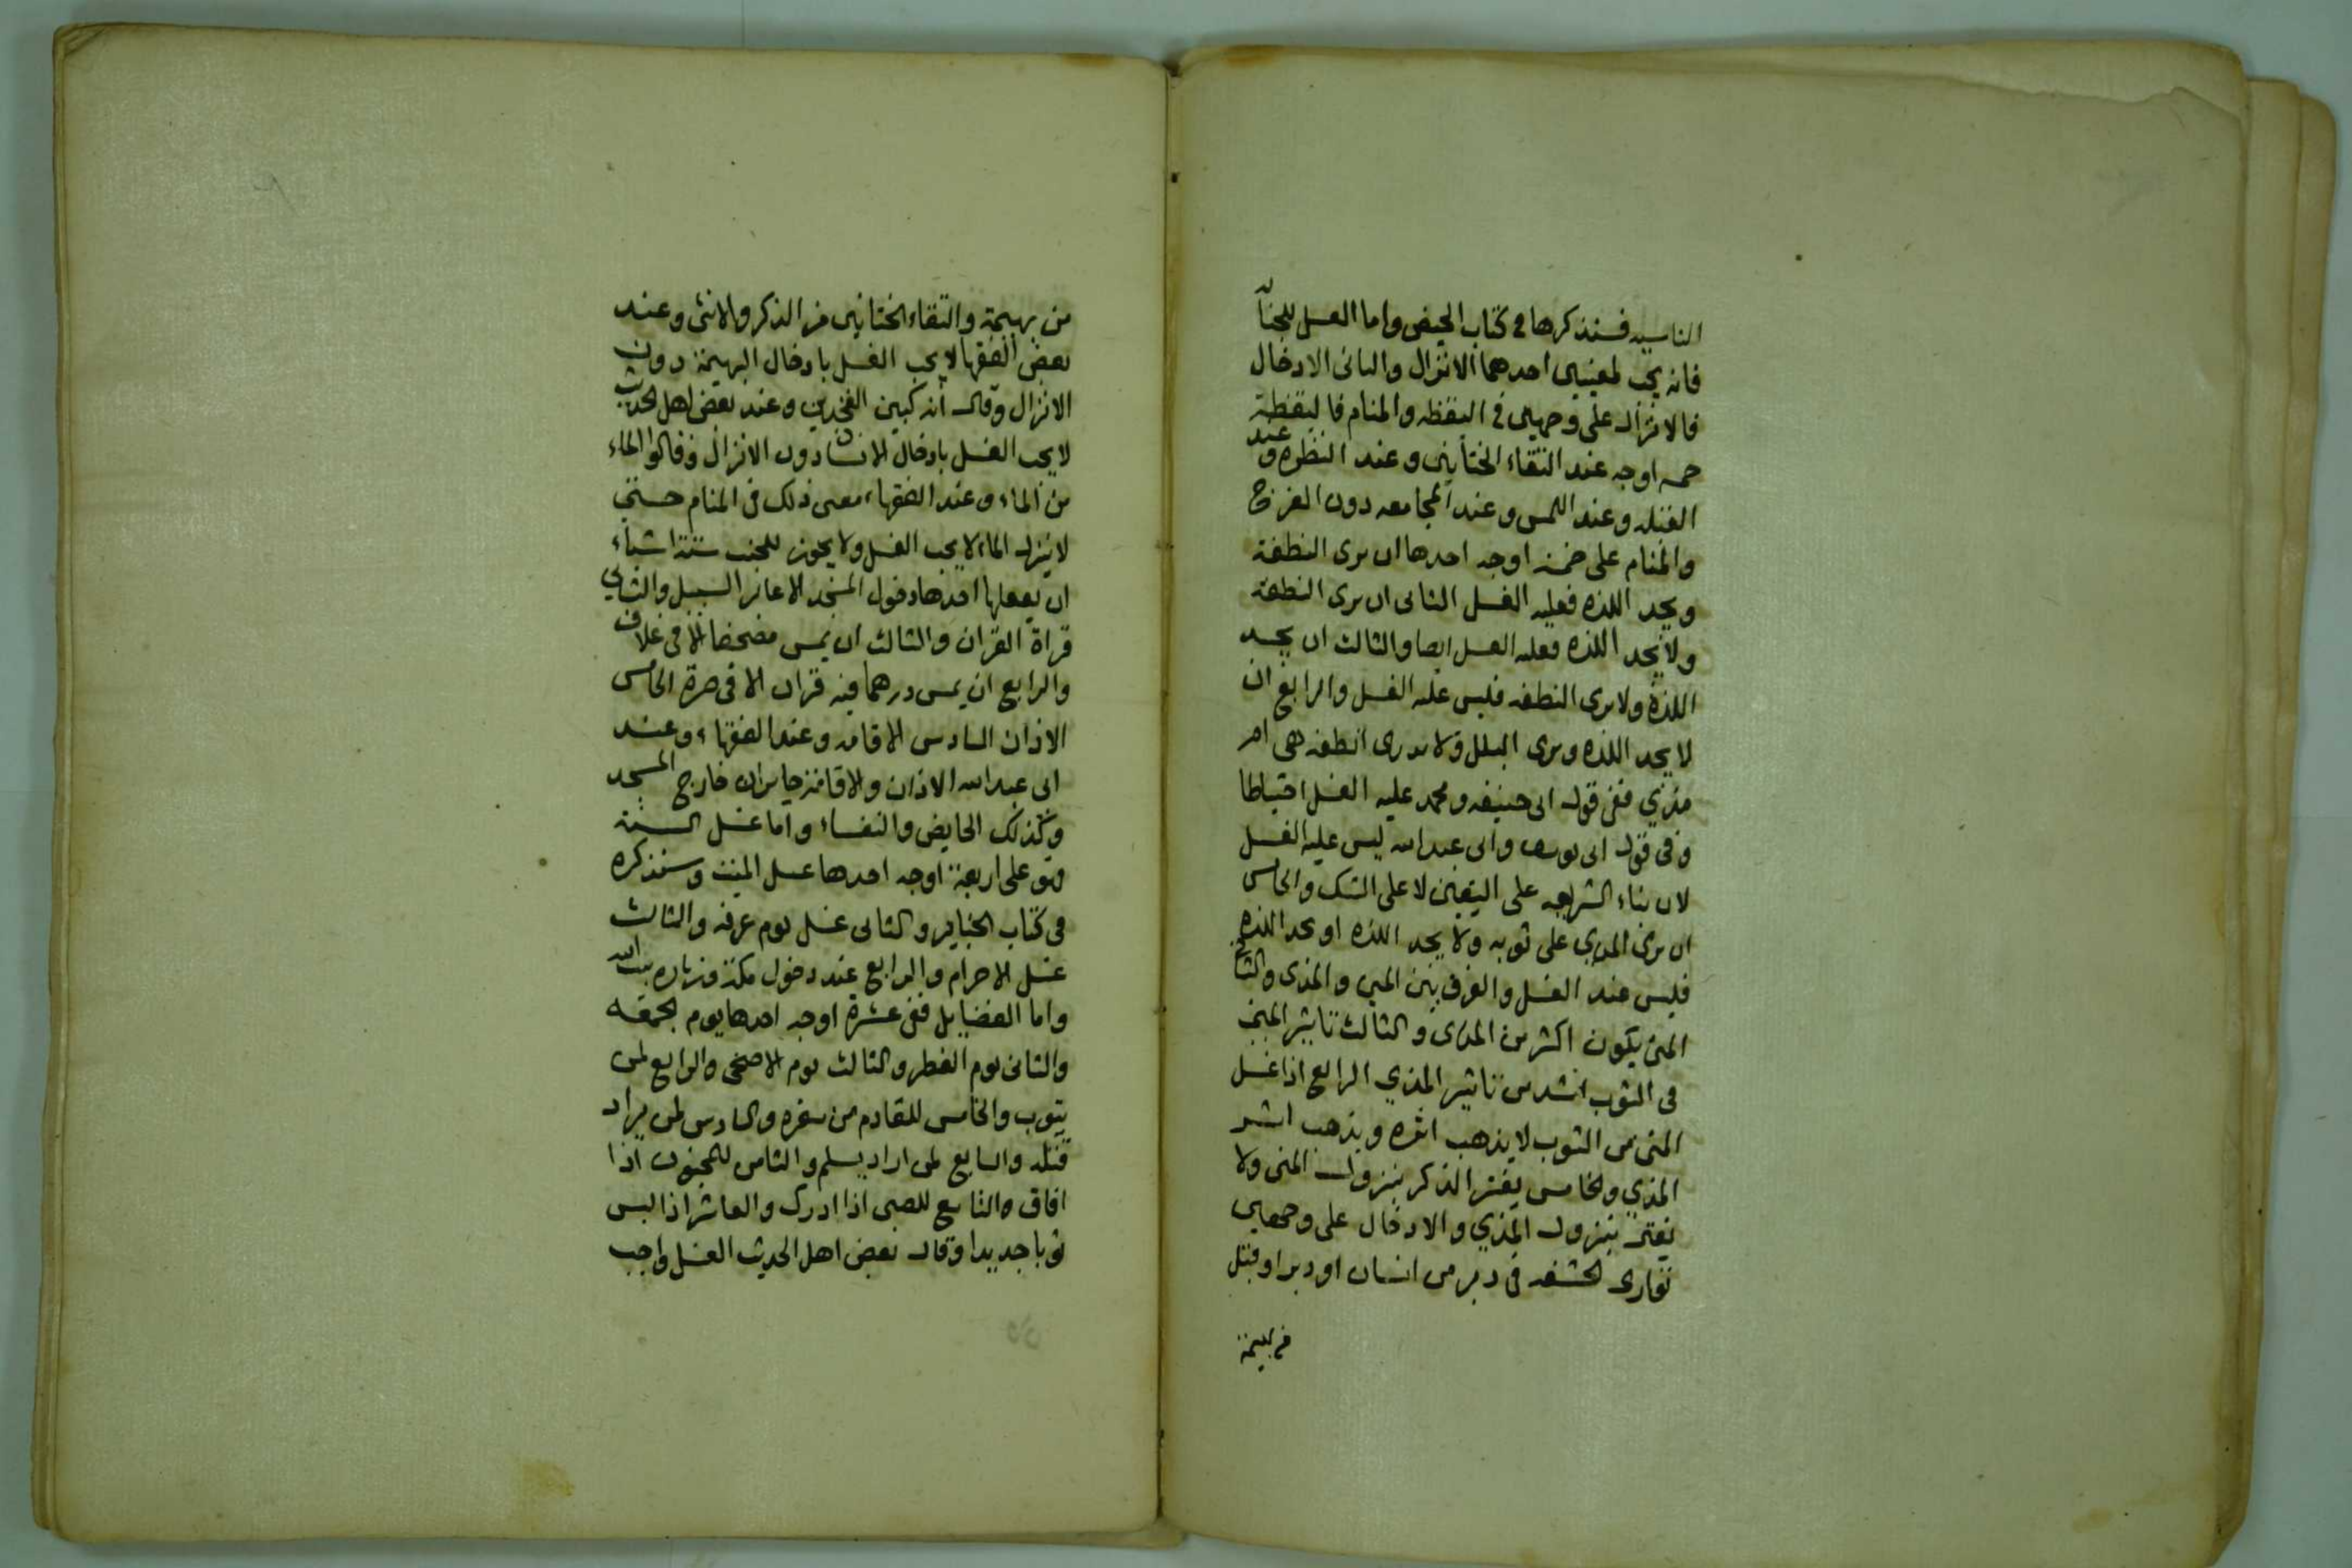 فسنذكرها في كتاب الحيض واما الغسل للجنابة
فانه يجب لمعنيين احدهما الانزال والثاني الادخال
فالانزال على وجهين في اليقظه والمنام فاليقظة
خمسه اوجه عند التقاء الختانين وعند النظره وعند
القبله وعند اللمس وعند المجامعه دون الفرج
والمنام على خمسة اوجه احدها ان يرى النطفة
ويجد اللذه فعليه الغسل الثاني ان يرى النطفة
ولا يجد اللذه فعليه الغسل ايضا والثالث ان يجد
اللذة ولا يرى النطفه فليس عليه الغسل والرابع ان
لا يجد اللذه ويرى البلل ولا يدرى انطفه هي ام
مذي ففي قول ابي حنيفه ومحمد عليه الغسل احتياطا
وفي قول ابي يوسف وابي عبدالله ليس عليه الغسل
لان بناء الشريعه على اليقين لا على الشك والخامس
ان يرى المذي على ثوبه ولا يجد اللذه او يجد اللذه
فليس عنده الغسل والفرق بين المني والمذي
المني يكون اكثر من المذي والثالث تاثير المني
في الثوب اشد من تاثير المذي الرابع اذا غسل
المني من الثوب لا يذهب اثره ويذهب اثر
المذي والخامس يفتر الذكر بنزول المني ولا
يفتر بنزول المذي والادخال على وجهين
توارى الحشفه في دبر من انسان او دبر او قبل
من بهيمة
من بهيمة والتقاء الختانين من الذكر والانثى وعند
بعض الفقها لا يجب الغسل بادخال البهيمة دون
الانزال وقال انه كبين الفخذين وعند بعض اهل الحديث
لا يجب الغسل بادخال الانسان دون الانزال وقالوا الماء
من الماء وعند الفقهاء معنى ذلك في المنام حتى
لا ينزل الماء لا يجب الغسل ولا يجوز للجنب ستة اشياء
ان يفعلها احدها دخول المسجد الا عابر السبيل والثاني
قراة القران والثالث ان يمس مصحفا الا في غلاف
والرابع ان يمس درهما فيه قران الا في صرة الخامس
الاذان السادس الاقامه وعند الفقهاء وعند
ابي عبدالله الاذان والاقامة جايزان خارج المسجد
وكذلك الحايض والنفساء واما غسل السنة
فهو على اربعة اوجه احدها غسل الميت وسنذكره
في كتاب الجنايز والثاني غسل يوم عرفه والثالث
غسل الاحرام والرابع عند دخول مكة وزياره بيت الله
واما الفضايل ففي عشرة اوجه احدها يوم الجمعه
والثاني يوم الفطر والثالث يوم الاضحى والرابع لمن
يتوب والخامس للقادم من سفره والسادس لمن يراد
قتله والسابع لمن اراد يسلم والثامن للمجنون اذا
افاق والتاسع للصبي اذا ادرك والعاشر اذا لبس
ثوبا جديدا وقال بعض اهل الحديث الغسل واجب